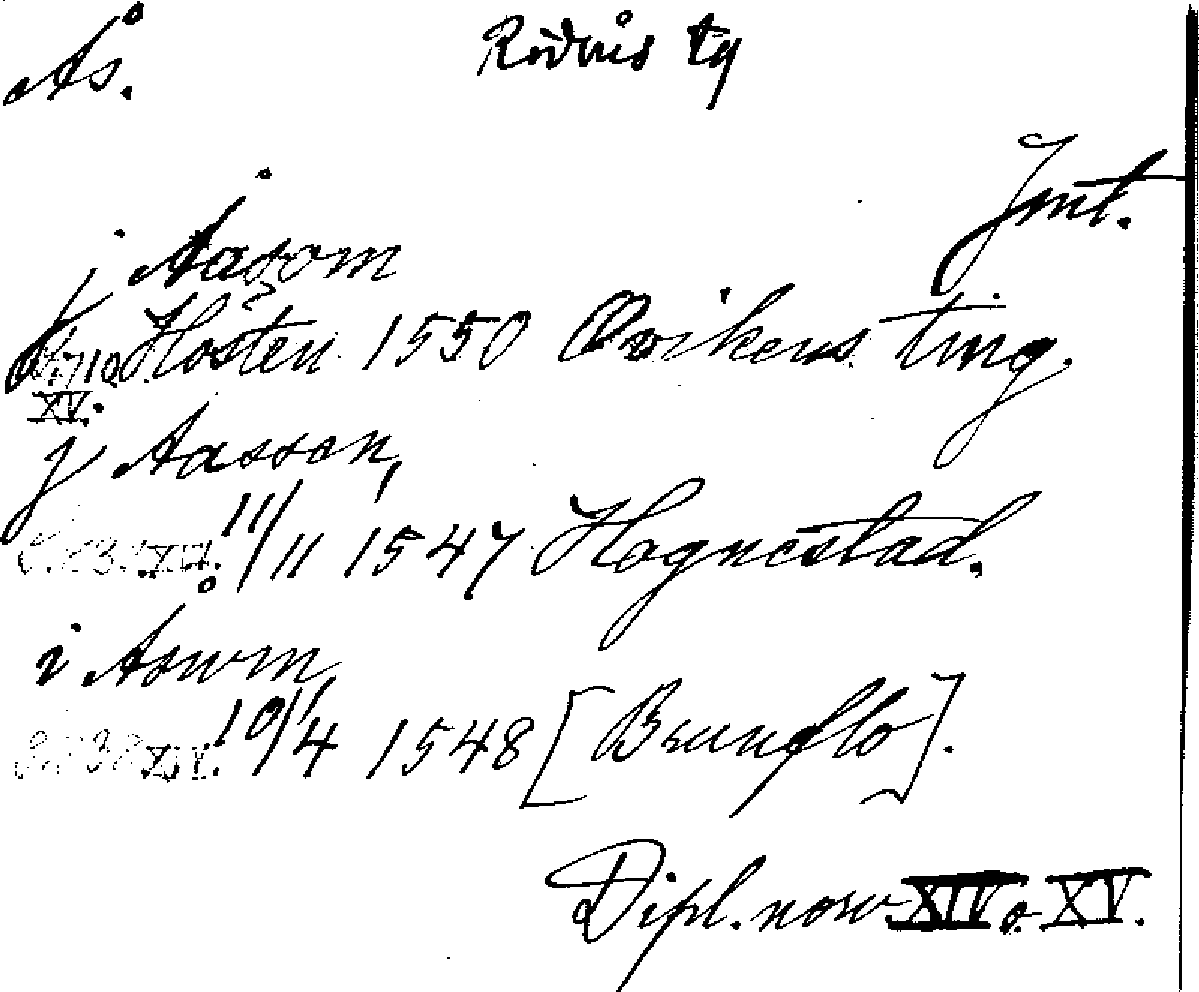 Ås. Rödöns tg
Jmt.
j Aasom
Hösten 1550 Ovikens ting.
XV.
j Aassen,
11/11 1547 Hognestad.
XV.
i Åswm,
10/4 1548 [Brunflo].
Dipl. norv. XIV o. XV.